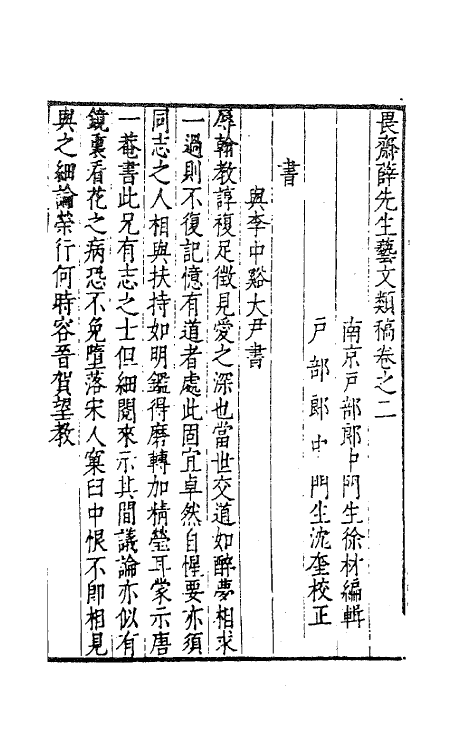 畏齋薛先生藝文類稿卷之二
南京戶部郎中門生徐材編輯
戶部郎中門生沈奎校正
書
與李中谿大尹書
辱翰教諄複足徵見愛之深也當世交道如醉夢相求
一過則不復記憶有道者處此固宜卓然自惺要亦須
同志之人相與扶持如明鑑得磨轉加精瑩耳蒙示唐
一菴書此兄有志之士但細閱來示其間議論亦似有
鏡裏看花之病恐不免墮落宋人窠臼中恨不即相見
與之細論榮行何時容晉賀望教